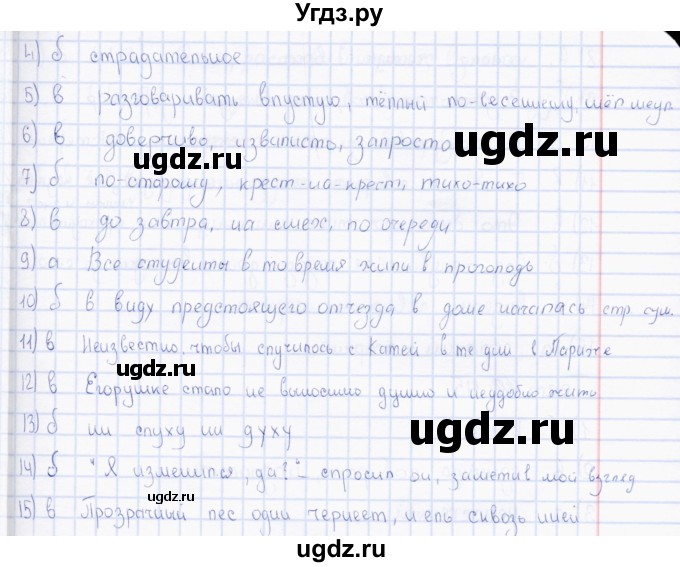 Угдз.ру
4) б страдательное
5) в разговаривать впустую, тёплый по-весеннему, шёл
6) в доверчиво, извилисто, запросто
7) б по-старому, крест-на-крест, тихо-тихо
8) в до завтра, на смех, по очереди
9) а Все студенты в то время жили в проголодь
10) б в виду предстоящего отъезда в доме началась стр. сум.
11) в Неизвестно, чтобы случилось с Катей в те дни в Париже
12) в Егорушке стало не выносимо душно и неудобно жить
13) б ни слуху ни духу
14) б "Я изменился, да?" - спросил он, заметив мой взгляд
15) в Прозрачный лес один чернеет, и ель сквозь иней
ugdz.ru
ugdz.ru
ugdz.ru
ugdz.ru
ugdz.ru
ugdz.ru
ugdz.ru
ugdz.ru